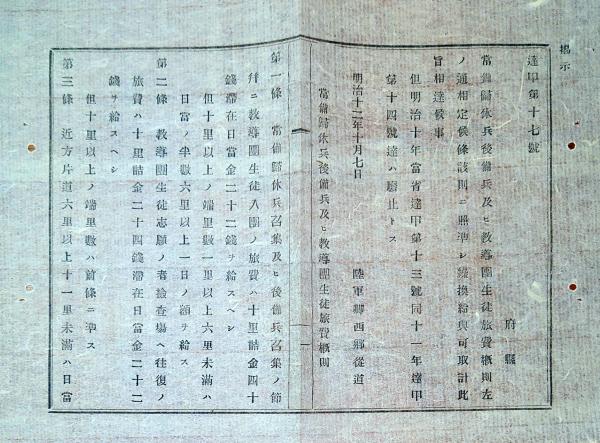 揭示
達甲第十七號
府縣
當備歸休兵後備兵及ヒ教導團生徒旅費槪則左
ノ通相定候條該則ニ照準シ繰換給與可取計此
旨相達候事
但明治十年當省達甲第十三號同十一年達甲
第十四號達ハ廢止トス
明治十二年十月七日
陸軍卿西鄕從道
常備歸休兵後備兵及ヒ教導團生徒旅費槪則
第一條 常備歸休兵召集及ヒ後備兵召集ノ節
幷ニ教導團生徒入團ノ旅費ハ十里詰金四十
錢滯在日當金二十二錢ヲ給スヘシ
但十里以上ノ端里數一里以上六里未滿ハ
日當ノ半數六里以上一日ノ額ヲ給ス
第二條 教導團生徒志願ノ者撿查場ヘ往復ノ
旅費ハ十里詰金二十四錢滯在日當金二十二
錢ヲ給スヘシ
但十里以上ノ端里數ハ前條ニ準ス
第三條 近方片道六里以上十一里未滿ハ日當